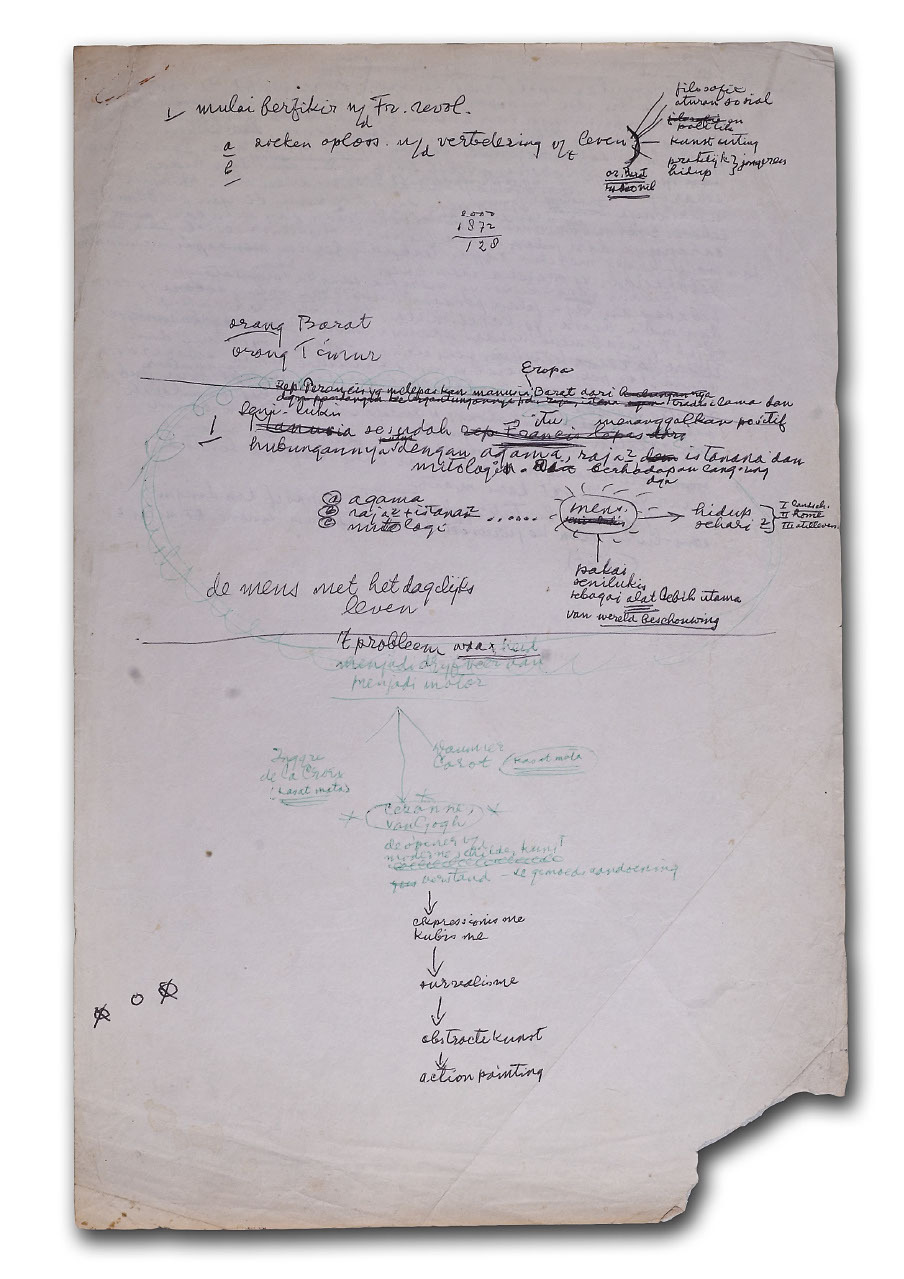 1 mulai berfikir n/d Fr. revol.
a zoeken oploss. n/d verbetering v/t leven
b
filosofie
aturan sosial
politik
kunst uiting
praktijk2 jongeren
hidup
or. Barat
2000
1872
128
orang Barat
orang Timur
Eropa
rep. Perancis yg melepaskan manusia Barat dari
tradisi lama dan
seni-lukis
1 Manusia sesudah rep Francis lepas dari
itu menanggalkan positif
hubungannya dengan agama, raja2 dan istana dan
mitologi. berhadapan langsung
dgn
a agama
b raja2 + istana2
c mitologi ...... mens → hidup
sehari2
I landsch.
II home
III stilleven
pakai
seni lukis
sebagai alat lebih utama
van wereld beschouwing
de mens met het dagelijks
leven
't probleem waarheid
menjadi drijfveer dan
menjadi motor
Inggre
de la Croix
(kasat mata)
Daumier
Corot kasat mata
Cezanne,
van Gogh
de opener v/
moderne schilderkunst
verstand - de gemoeds aandoening
ekspressionisme
kubisme
surrealisme
abstracte kunst
action painting